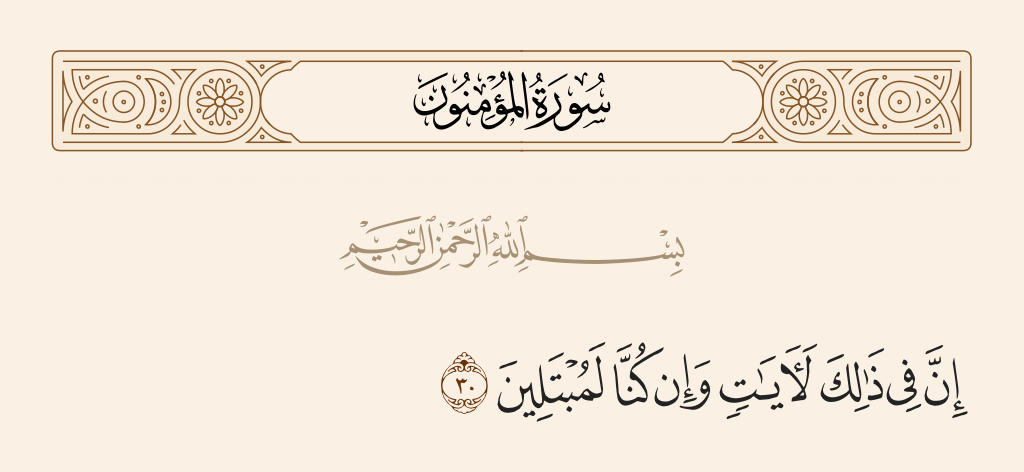 سُورَةُ المُؤْمِنُونَ
بِسْمِ ٱللَّهِ ٱلرَّحْمَٰنِ ٱلرَّحِيمِ
إِنَّ فِى ذَٰلِكَ لَـَٔايَـٰتٍ وَإِن كُنَّا لَمُبْتَلِينَ ٣٠